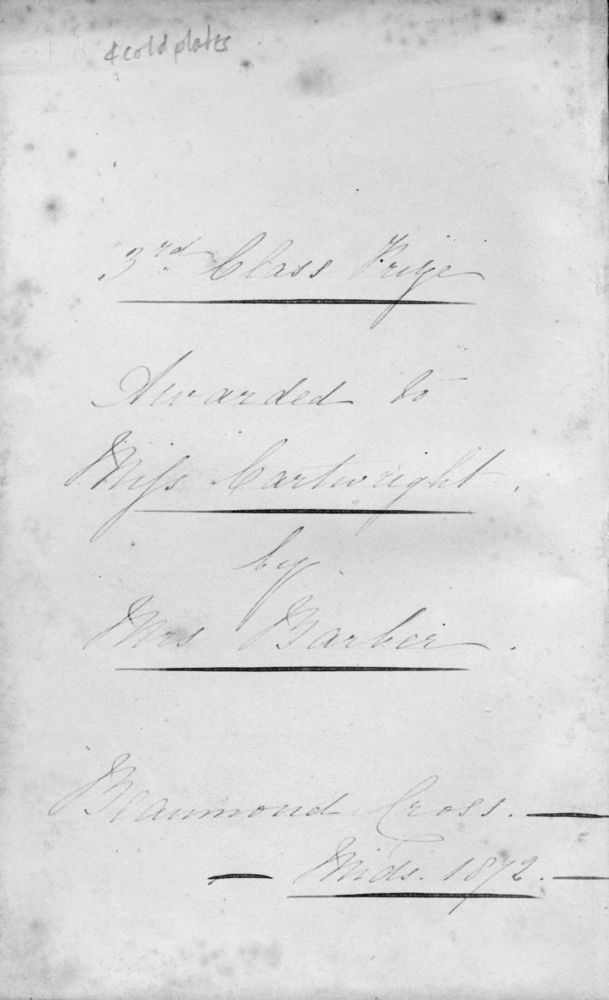 4 cold plates
3rd Class Prize
Awarded to
Miss Cartwright.
by
Mrs Barber.
Beaumond Cross. —
— Mids. 1872. —